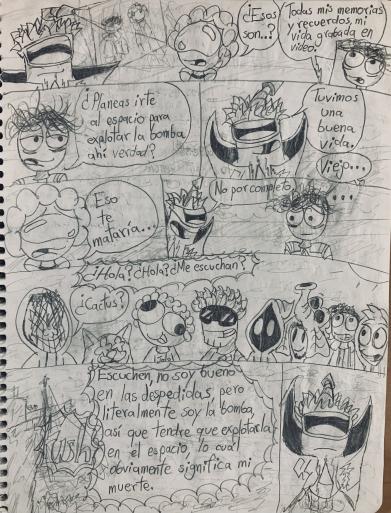 ¿Esos
son..?
Todas mis memorias
y recuerdos, mi
vida grabada en
video.
¿Planeas irte
al espacio para
explotar la bomba
ahi verdad?
Tuvimos
una
buena
vida.
Viejo...
Eso
te
mataría...
No por completo.
...
¿Hola? ¿Hola? ¿Me escuchan?
¿Cactus?
Escuchen, no soy bueno
en las despedidas, pero
literalmente soy la bomba,
así que tendre que explotarla
en el espacio, lo cual
obviamente significa mi
muerte.